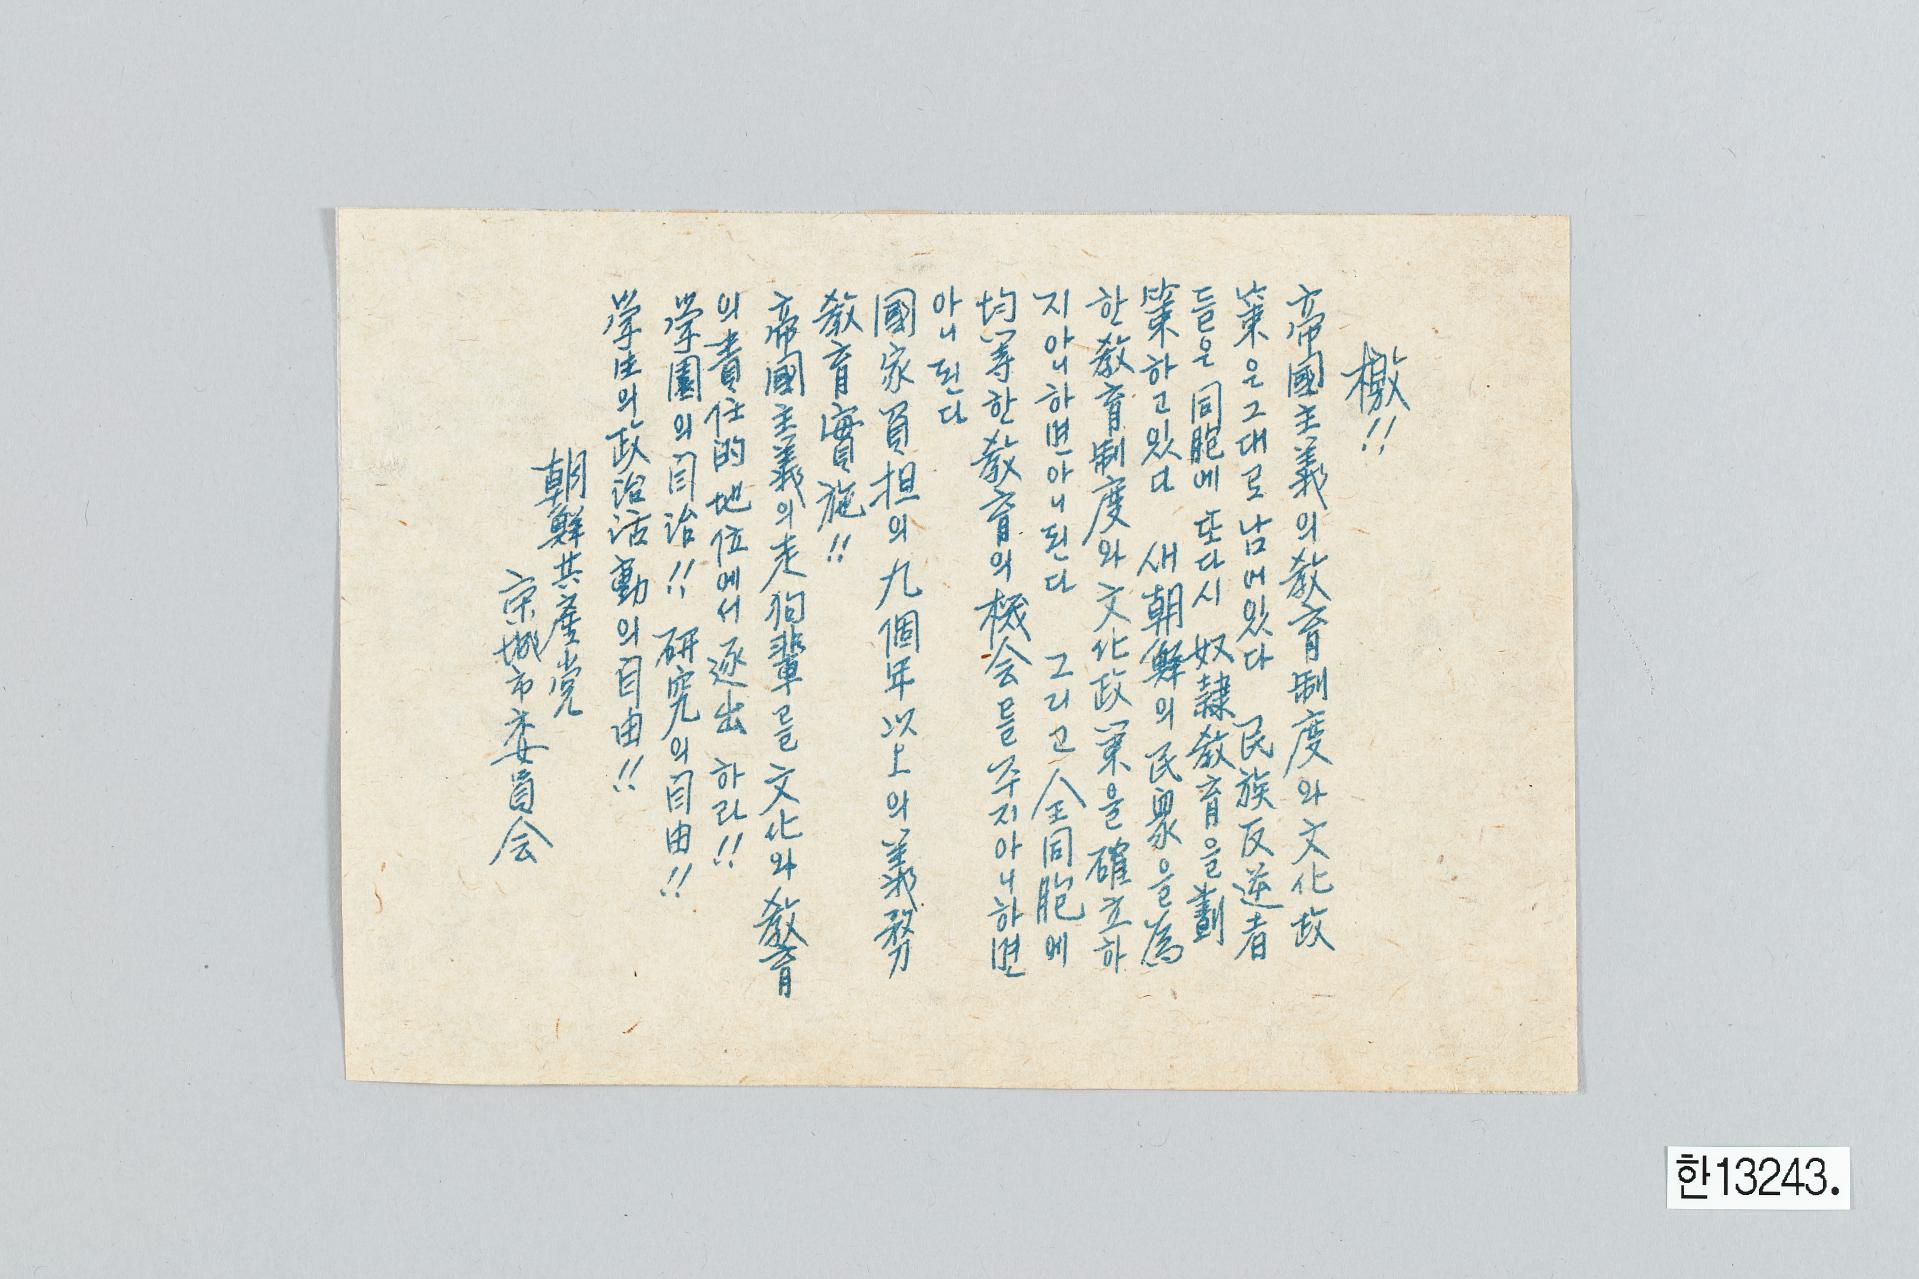 檄!!
帝國主義의敎育制度와文化政
策은그대로남어있다 民族反逆者
들은同胞에또다시奴隷敎育을劃
策하고있다 새朝鮮의民衆을爲
한敎育制度와文化政策을確立하
지아니하면아니된다 그리고全同胞에
均等한敎育의機会를주지아니하면
아니된다
國家負担의九個年以上의義務
敎育實施!!
帝國主義의走狗輩를文化와敎育
의責任的地位에서逐出하라!!
学園의自治!! 研究의自由!!
学生의政治活動의自由!!
朝鮮共産党
京城市委員会
한13243.